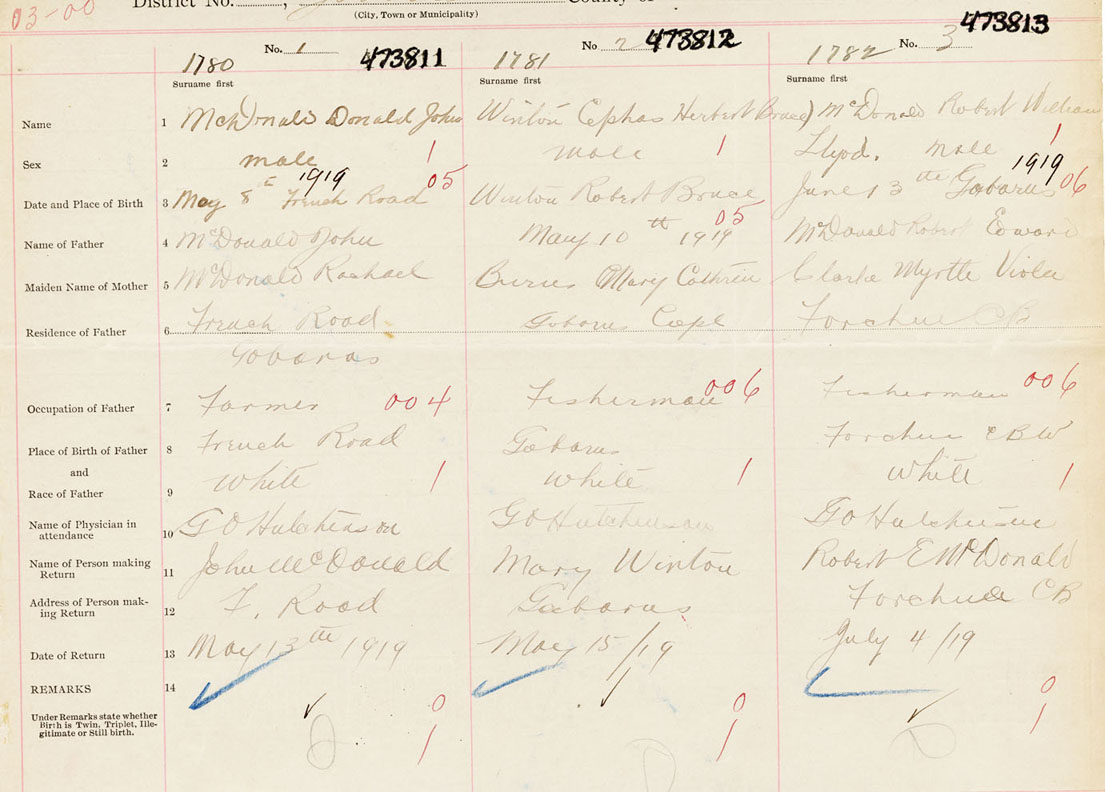 03-00
District No. , County of
(City, Town or Municipality)
No. 1 473811 No 2 473812 No. 3 473813
1780 1781 1782
Surname first Surname first Surname first
Name 1 McDonald Donald John Winton Cephas Herbert Bruce) McDonald Robert William
Sex 2 male 1 male 1 Llyod. male 1
Date and Place of Birth 3 May 8th 1919 French Road 05 Winton Robert Bruce June 13th 1919 Gabarus 06
Name of Father 4 McDonald John May 10th 1919 05 McDonald Robert Edward
Maiden Name of Mother 5 McDonald Rachael Burns Mary Cathrin Clarke Myrtle Viola
Residence of Father 6 French Road Gabarus Cape Forchue CB
Gobaras
Occupation of Father 7 Farmer 004 Fisherman 006 Fisherman 006
Place of Birth of Father 8 French Road Gabarus Forchue CB
and
Race of Father 9 White 1 White 1 White 1
Name of Physician in
attendance 10 G O Hutchinson G O Hutchinson G O Hutchinson
Name of Person making
Return 11 John McDonald Mary Winton Robert E McDonald
Address of Person mak-
ing Return 12 F. Road Gabarus Forchue CB
Date of Return 13 May 13th 1919 May 15/19 July 4/19
REMARKS 14 0 0 0
Under Remarks state whether
Birth is Twin, Triplet, Ille-
gitimate or Still birth. 1 1 1